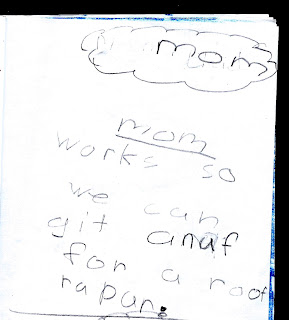 mom
mom
works so
we can
git anuf
for a roof
rapur.